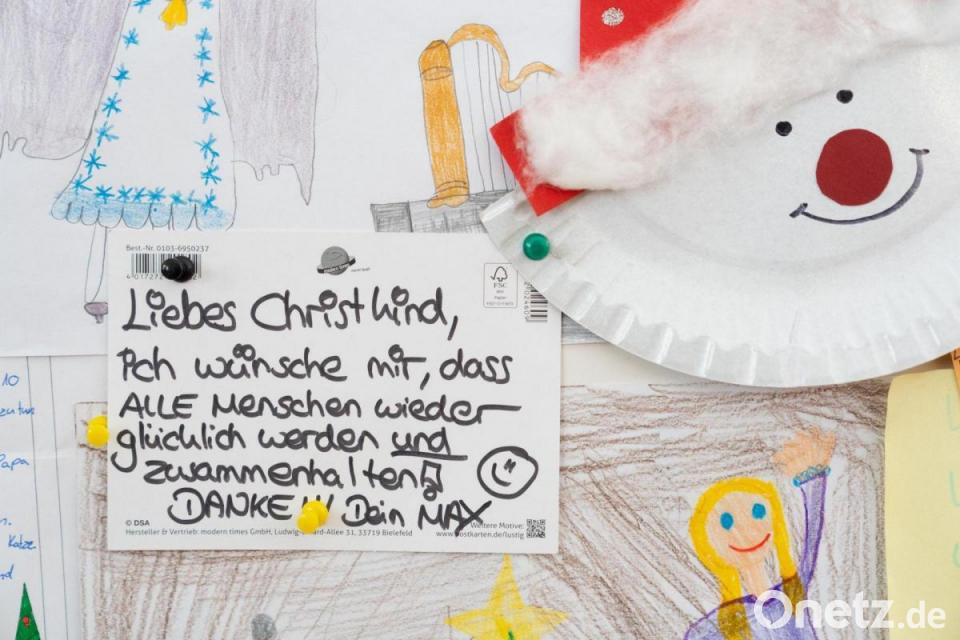 Best.-Nr. 0103-6950237
FSC
Liebes Christkind,
ich wünsche mir, dass
ALLE Menschen wieder
glücklich werden und
zwammenhalten!
DANKE!!! Dein MAX
© DSA
Weitere Motive:
Hersteller & Vertrieb: modern times GmbH, Ludwig-
-Allee 31, 33719 Bielefeld
10
Papa
Katze
Onetz.de